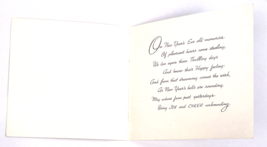 On New Year's Eve old memories
Of pleasant hours come stealing,
We live again those thrilling days
And know their Happy feeling;
And from that dreaming comes the wish,
As New Year bells are sounding,
May whose from past yesterdays
Bring JOY and CHEER unbounding.